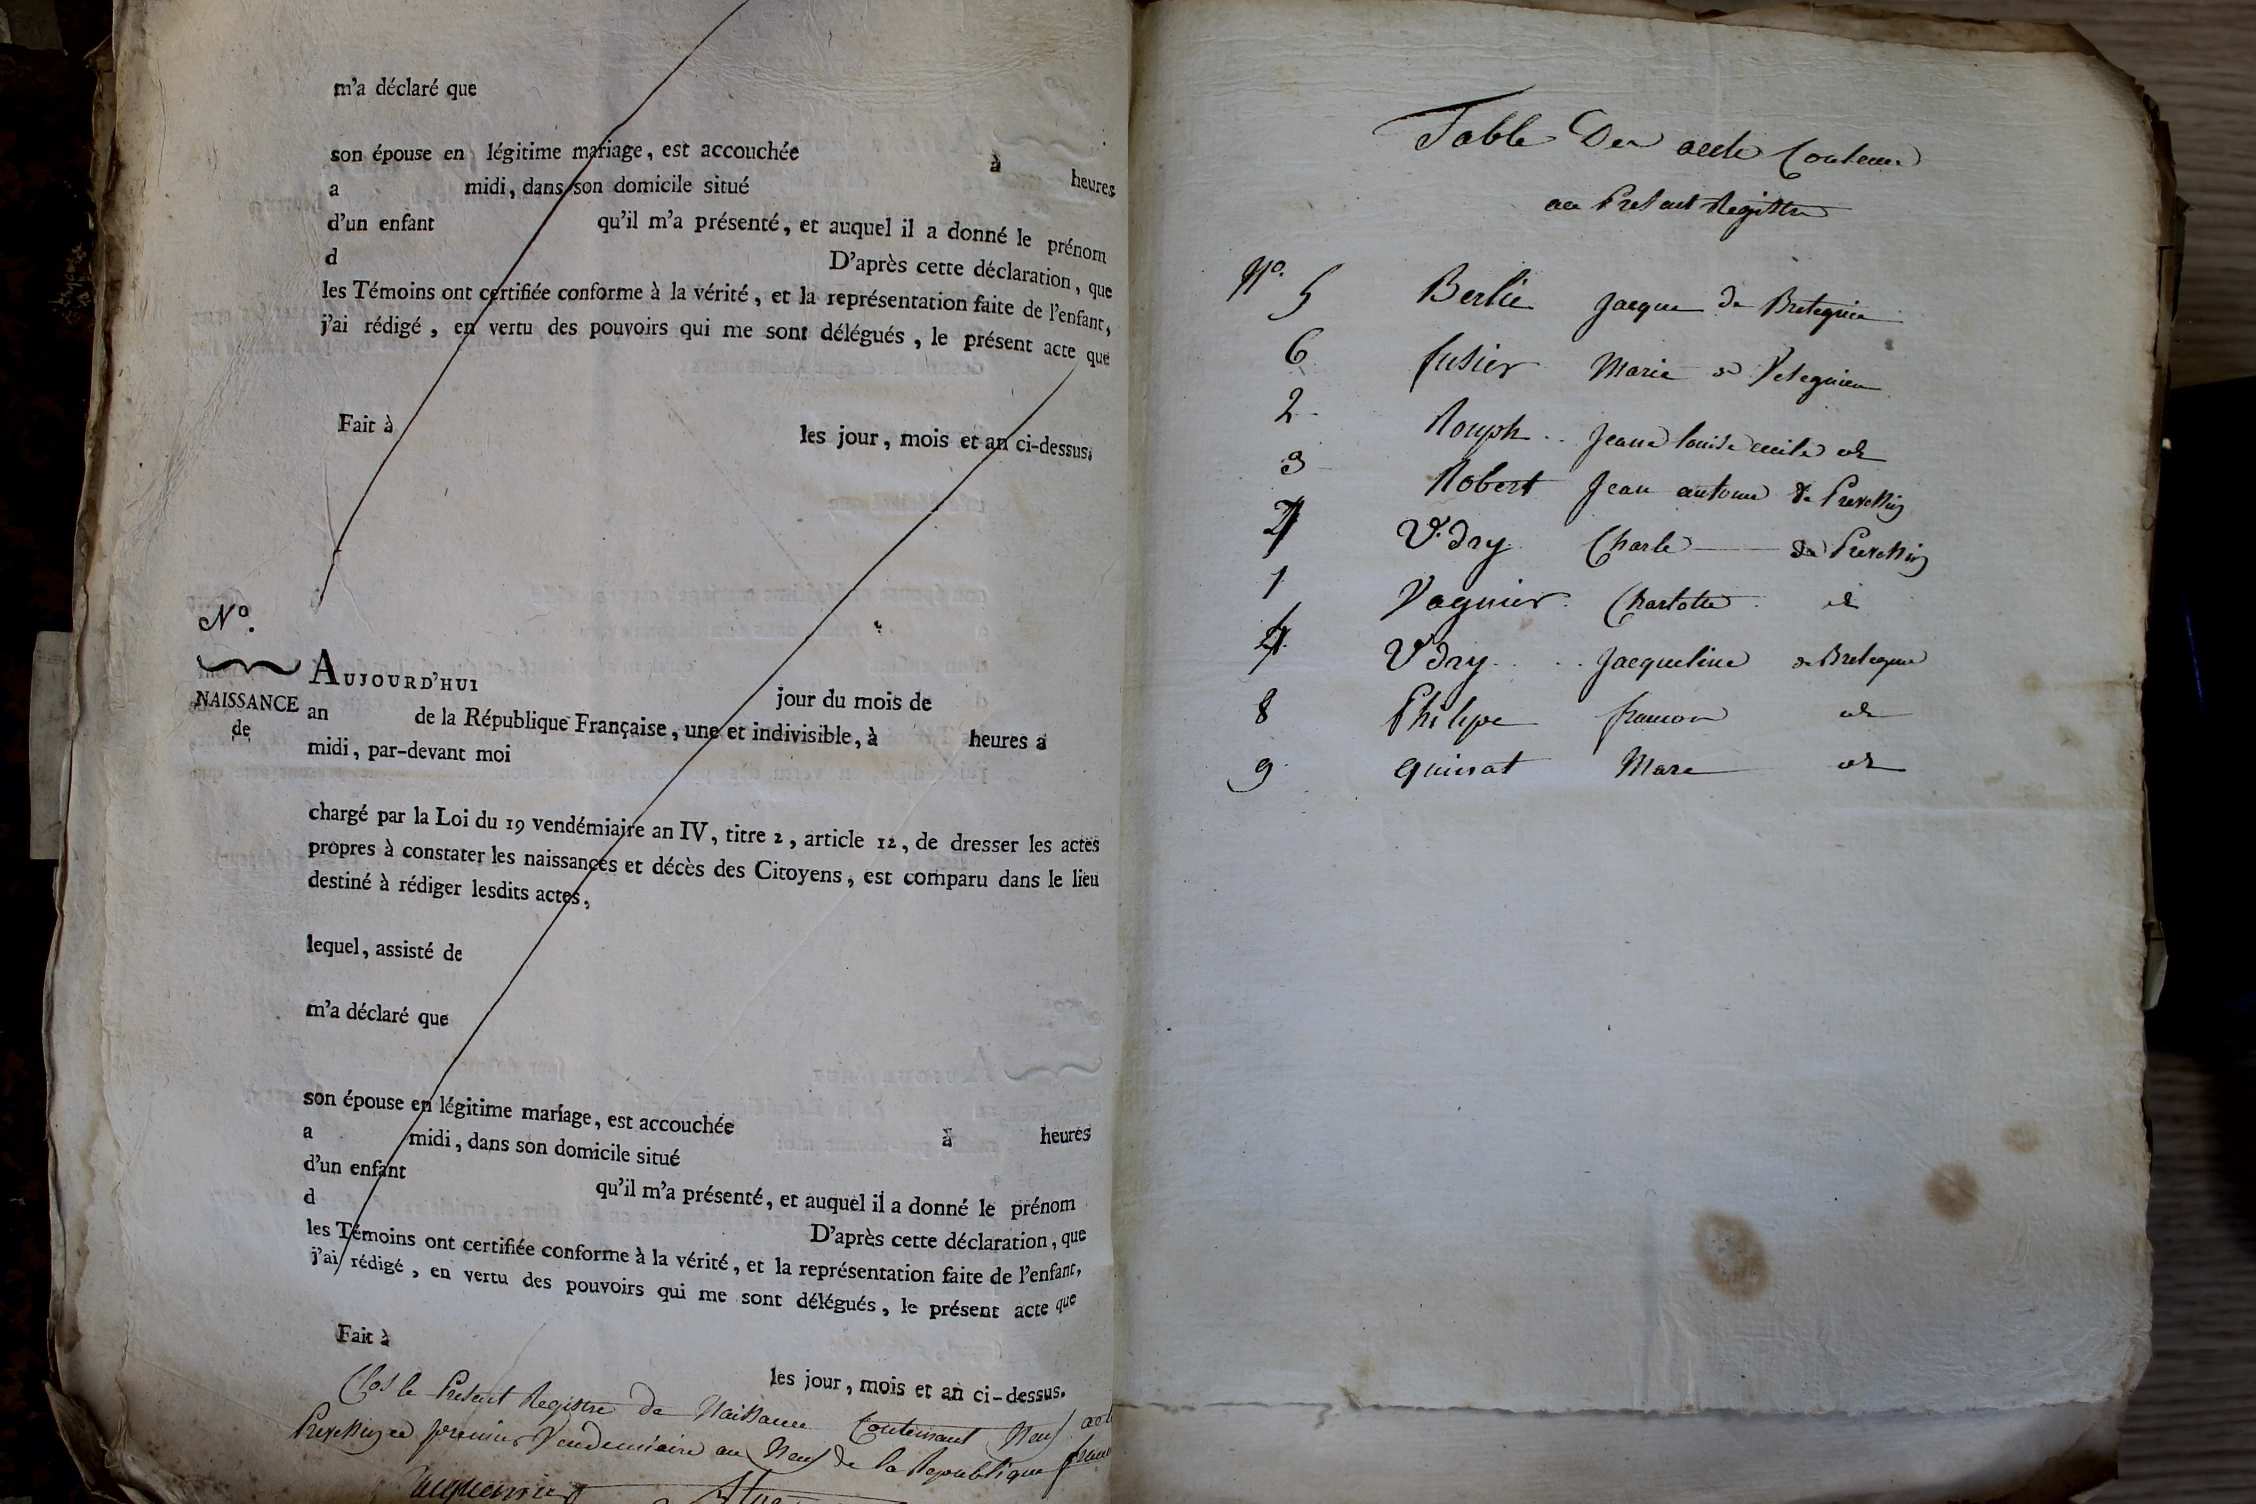 m'a déclaré que
son épouse en légitime mariage, est accouchée à heures
a midi, dans son domicile situé
d'un enfant qu'il m'a présenté, et auquel il a donné le prénom
d D'après cette déclaration, que
les Témoins ont certifiée conforme à la vérité, et la représentation faite de l'enfant,
j'ai rédigé, en vertu des pouvoirs qui me sont délégués, le présent acte que
Fait à les jour, mois et an ci-dessus.
N°.
NAISSANCE
de
AUJOURD'HUI jour du mois de
an de la République Française, une et indivisible, à heures a
midi, par-devant moi
chargé par la Loi du 19 vendémiaire an IV, titre 2, article 12, de dresser les actes
propres à constater les naissances et décès des Citoyens, est comparu dans le lieu
destiné à rédiger lesdits actes,
lequel, assisté de
m'a déclaré que
son épouse en légitime mariage, est accouchée à heures
a midi, dans son domicile situé
d'un enfant qu'il m'a présenté, et auquel il a donné le prénom
d D'après cette déclaration, que
les Témoins ont certifiée conforme à la vérité, et la représentation faite de l'enfant,
j'ai rédigé, en vertu des pouvoirs qui me sont délégués, le présent acte que
Fait à les jour, mois et an ci-dessus.
Clos le Present Registre de Naissance Contenant Neuf
premier Vendemiaire an Neuf de la Republique
Table Des acte Contenu
au Present Registre
N°. 5 Berlie Jacque de
6 fusier Marie
2 Rouph Jeane louise cecile id
3 Robert Jean antoine de Prevessin
7 Vidry Charle de Prevessin
1 Vagnier Charlotte id
4 Vidry Jacqueline
8 Philipe id
9 Marc id